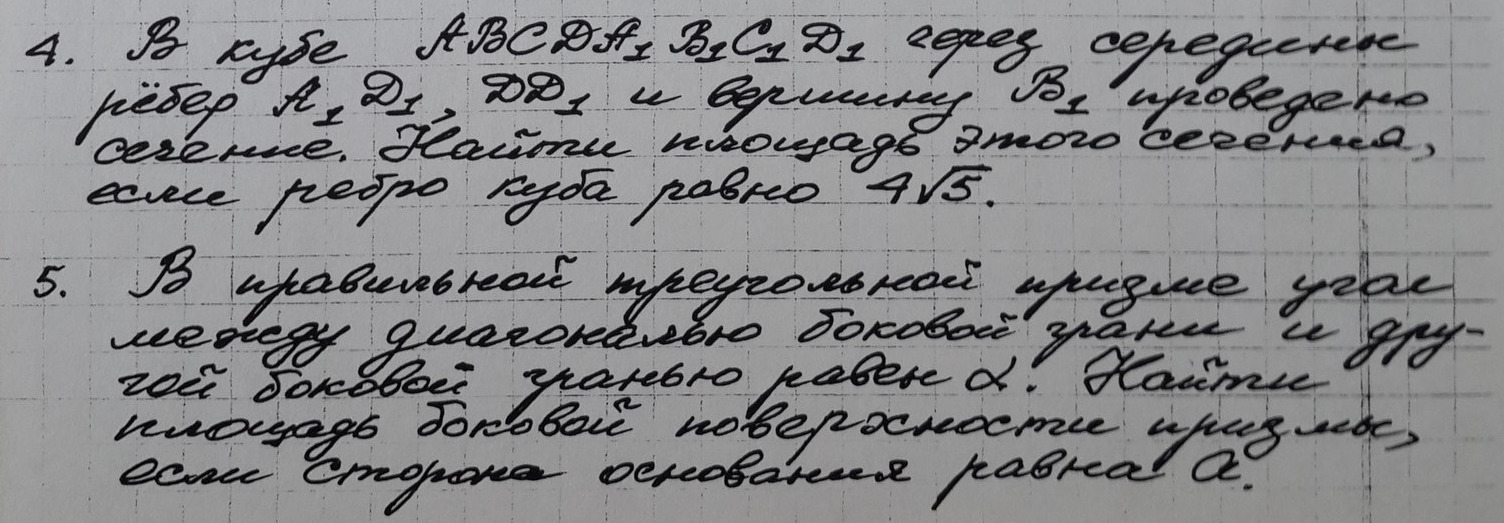 4. В кубе ABCDA₁B₁C₁D₁ через середины
рёбер A₁D₁, DD₁ и вершину B₁ проведено
сечение. Найти площадь этого сечения,
если ребро куба равно 4√5.
5. В правильной треугольной призме угол
между диагональю боковой грани и дру-
гой боковой гранью равен α. Найти
площадь боковой поверхности призмы,
если сторона основания равна a.